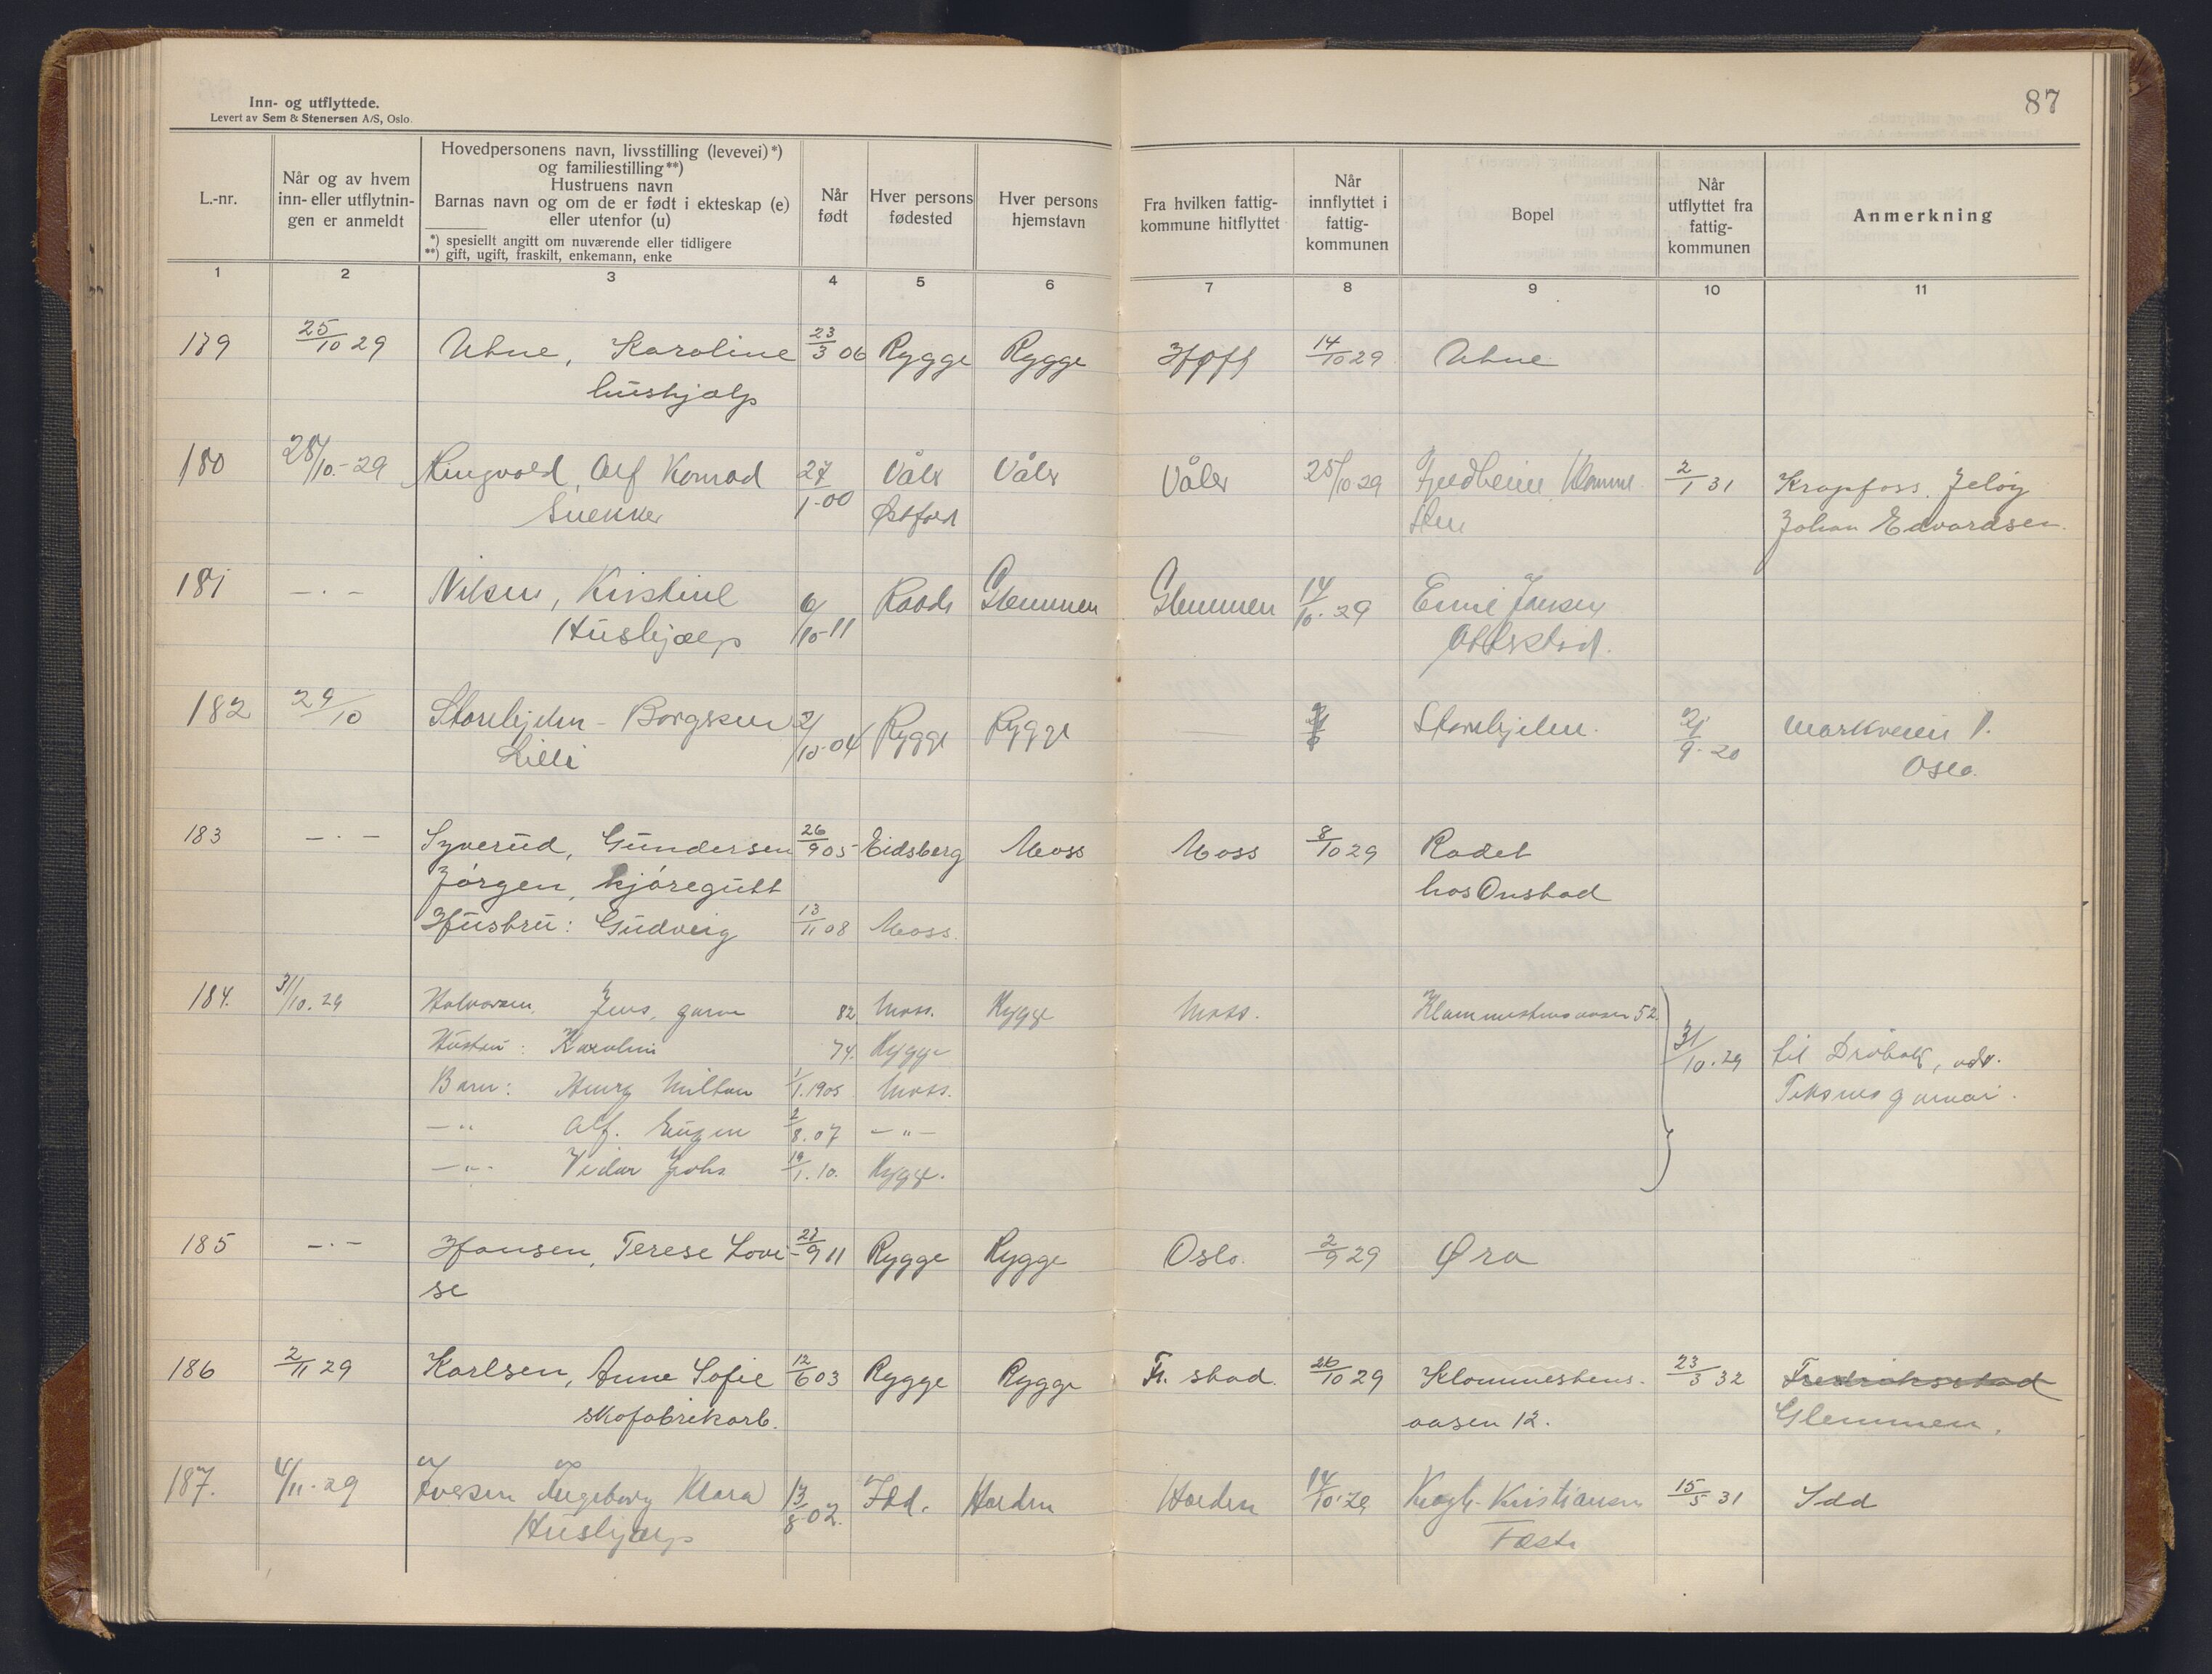 87
Inn- og utflyttede.
Levert av Sem & Stenersen A/S, Oslo.
L.-nr.
Når og av hvem inn- eller utflytnin-gen er anmeldt
Hovedpersonens navn, livsstilling (levevei)*)
og familiestilling**)
Hustruens navn
Barnas navn og om de er født i ekteskap (e)
eller utenfor (u)
*) spesielt angitt om nuværende eller tidligere
**) gift, ugift, fraskilt, enkemann, enke
Når født
Hver persons fødested
Hver persons hjemstavn
Fra hvilken fattig-kommune hitflyttet
Når innflyttet i fattig-kommunen
Bopel
Når utflyttet fra fattig-kommunen
Anmerkning
1 2 3 4 5 6 7 8 9 10 11
179 25/10 29 Uhne, Karoline 23/3 06 Rygge Rygge 14/10 29 Uhne
hushjælp
180 28/10.-29 Ringvold, Alf Konrad 27/1-00 Våler Våler Våler 25/10 29 2/1 31 Krapfoss. Jeløy
Snekker Østfold Johan Edvardsen.
181 -.- Nilsen, Kristine 6/10-11 Raade Glemmen Glemmen 14/10.29 Jensen
Hushjælp
182 29/10 Storehjelm - Borgsken 2/10-04 Rygge Rygge Storehjelm. 2/9-20 Markveien 1.
Lilli Oslo.
183 -.- Syverud, Gundersen 26/9 05 Eidsberg Moss Moss 8/10 29 Radet
Jörgen, kjöregutt hos Onstad
Hustru: Gudveig 13/11 08 Moss.
184. 31/10.29 Halvorsen, Jens, 82 Moss. Rygge Moss. 52
Hustru: Karoline 74. Rygge 31/10.29 til Dröbak, adr.
Barn: Henry Milton 1/1.1905 Moss.
-"- Alf. Eugen 2/8.07 -"-
-"- Vidar Johs 19/1.10. Rygge.
185 -.- Hansen, Terese Lovi- 9 11 Rygge Rygge Oslo. 2/9 29 Øra
se
186 2/11 29 Karlsen, Anne Sofie 12/6 03 Rygge Rygge Fr. stad. 26/10 29 Klommestens- 23/3 32 Fredriksstad
skofabrikarb. aasen 12. Glemmen.
187. 4/11.29 Iversen Ingeborg Klara 13/8.02. Idd. Halden Halden 14/10.29 Kristiansen 15/5 31 Idd
Hushjælp